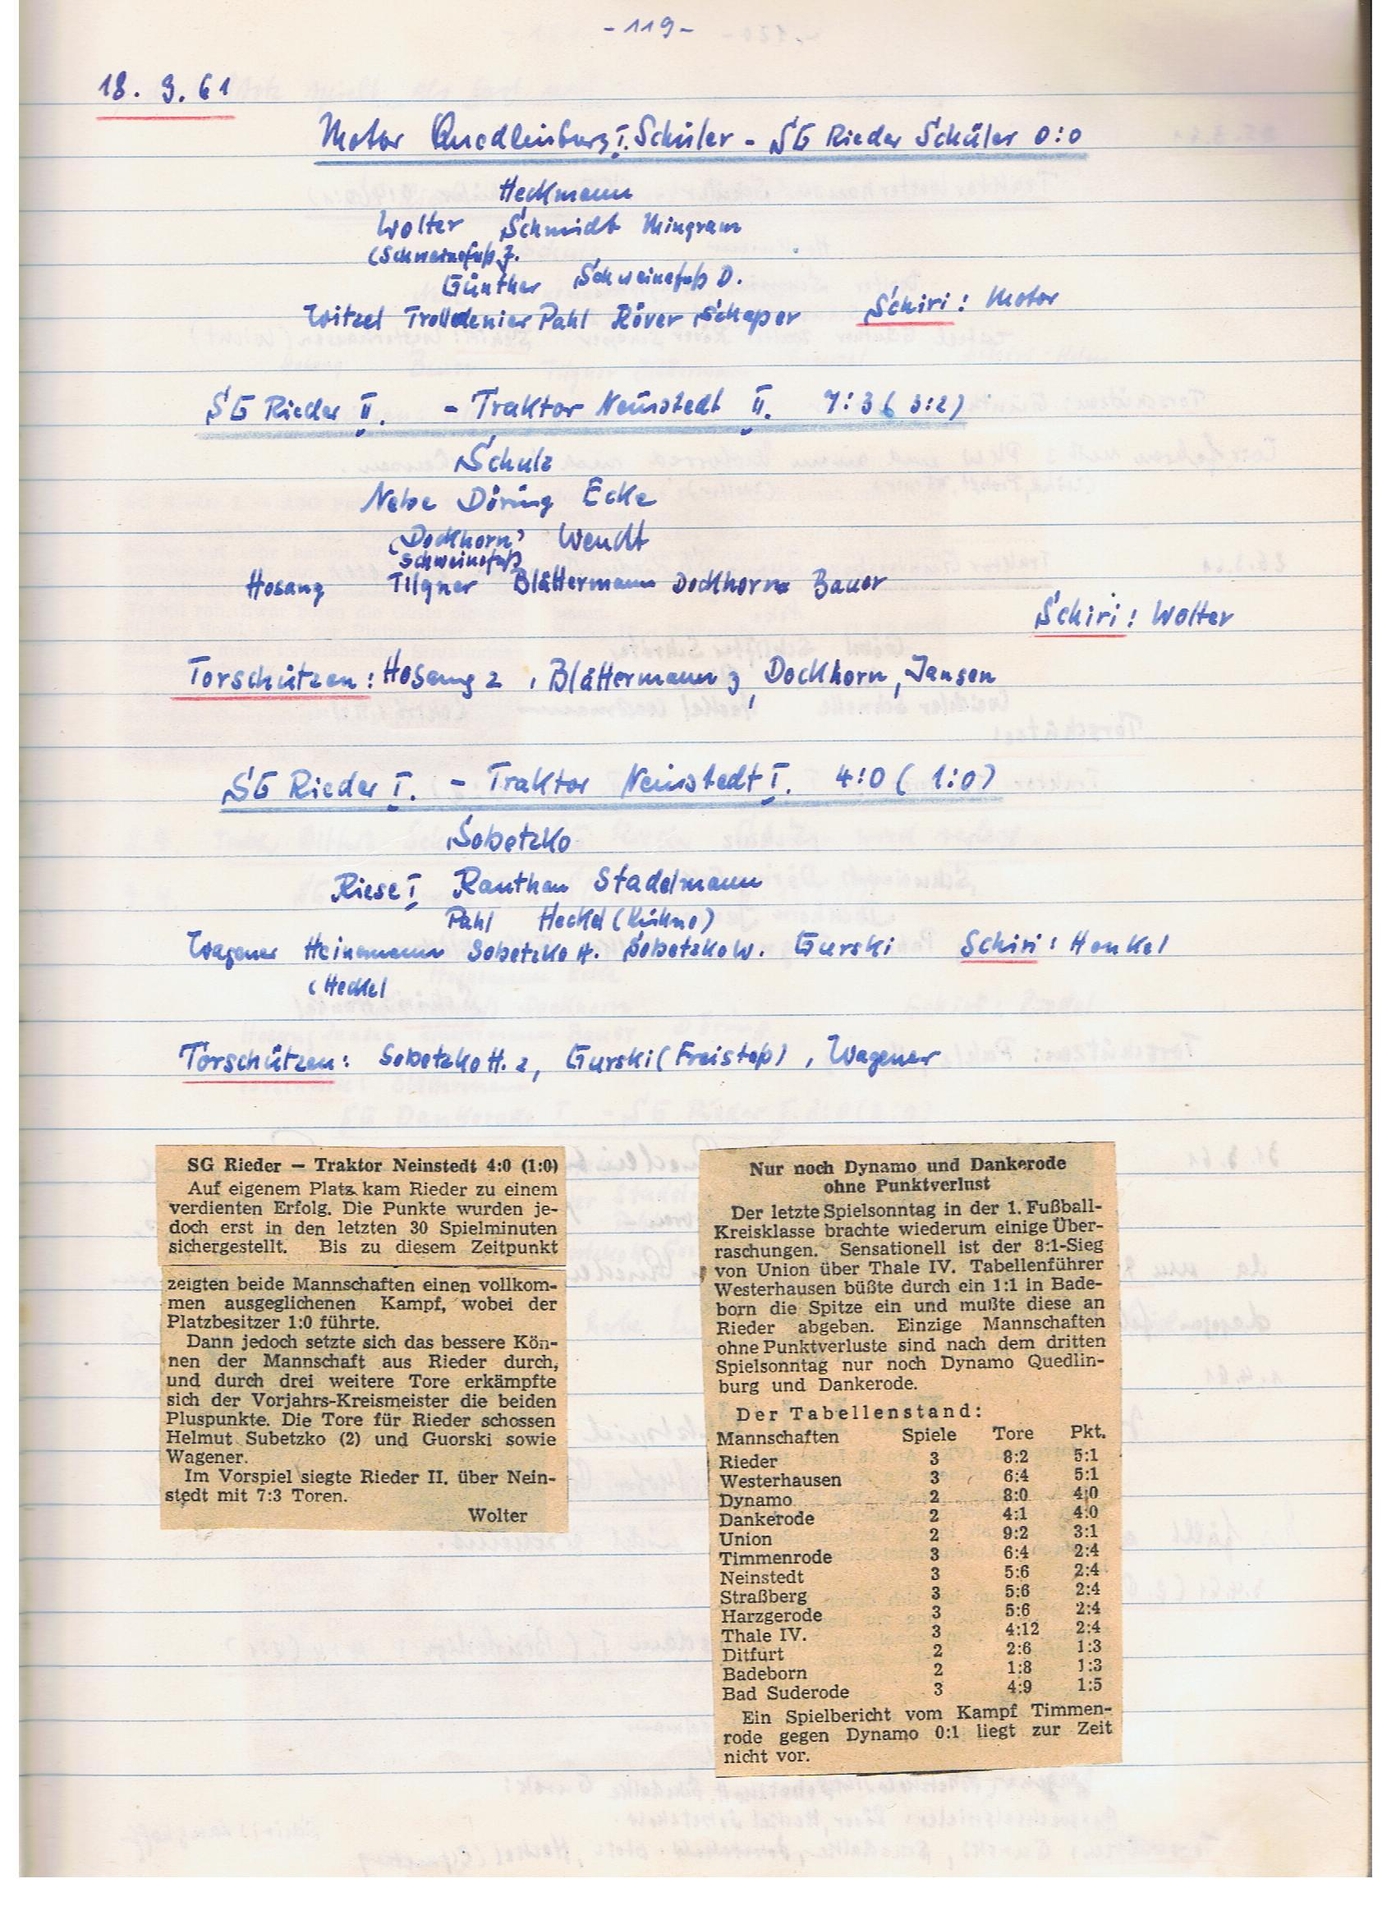 - 119 -
18. 3. 61
Motor Quedlinburg I. Schüler - SG Rieder Schüler 0:0
Heckmann
Wolter Schmidt Mingram
(Schweinefuß J.
Günther Schweinefuß D.
Witzel Trolldenier Pahl Röver Schaper Schiri: Motor
SG Rieder II. - Traktor Neinstedt II. 7:3 (3:2)
Schulz
Nebe Döring Ecke
(Dockhorn) Wendt
Schweinefuß
Hosang Tilgner Blättermann Dockhorn Bauer
Schiri: Wolter
Torschützen: Hosang 2, Blättermann 3, Dockhorn, Jansen
SG Rieder I. - Traktor Neinstedt I. 4:0 (1:0)
Sobetzko
Riese I Ranthen Stadelmann
Pahl Heckel (Kühne)
Wagener Heinemann Sobetzko H. Sobetzko W. Gurski Schiri: Henkel
(Heckel
Torschützen: Sobetzko H. 2, Gurski (Freistoß), Wagener
SG Rieder — Traktor Neinstedt 4:0 (1:0)
Auf eigenem Platz kam Rieder zu einem
verdienten Erfolg. Die Punkte wurden je-
doch erst in den letzten 30 Spielminuten
sichergestellt. Bis zu diesem Zeitpunkt
zeigten beide Mannschaften einen vollkom-
men ausgeglichenen Kampf, wobei der
Platzbesitzer 1:0 führte.
Dann jedoch setzte sich das bessere Kön-
nen der Mannschaft aus Rieder durch,
und durch drei weitere Tore erkämpfte
sich der Vorjahrs-Kreismeister die beiden
Pluspunkte. Die Tore für Rieder schossen
Helmut Subetzko (2) und Guorski sowie
Wagener.
Im Vorspiel siegte Rieder II. über Nein-
stedt mit 7:3 Toren.
Wolter
Nur noch Dynamo und Dankerode
ohne Punktverlust
Der letzte Spielsonntag in der 1. Fußball-
Kreisklasse brachte wiederum einige Über-
raschungen. Sensationell ist der 8:1-Sieg
von Union über Thale IV. Tabellenführer
Westerhausen büßte durch ein 1:1 in Bade-
born die Spitze ein und mußte diese an
Rieder abgeben. Einzige Mannschaften
ohne Punktverluste sind nach dem dritten
Spielsonntag nur noch Dynamo Quedlin-
burg und Dankerode.
Der Tabellenstand:
Mannschaften Spiele Tore Pkt.
Rieder 3 8:2 5:1
Westerhausen 3 6:4 5:1
Dynamo 2 8:0 4:0
Dankerode 2 4:1 4:0
Union 2 9:2 3:1
Timmenrode 3 6:4 2:4
Neinstedt 3 5:6 2:4
Straßberg 3 5:6 2:4
Harzgerode 3 5:6 2:4
Thale IV. 3 4:12 2:4
Ditfurt 2 2:6 1:3
Badeborn 2 1:8 1:3
Bad Suderode 3 4:9 1:5
Ein Spielbericht vom Kampf Timmen-
rode gegen Dynamo 0:1 liegt zur Zeit
nicht vor.